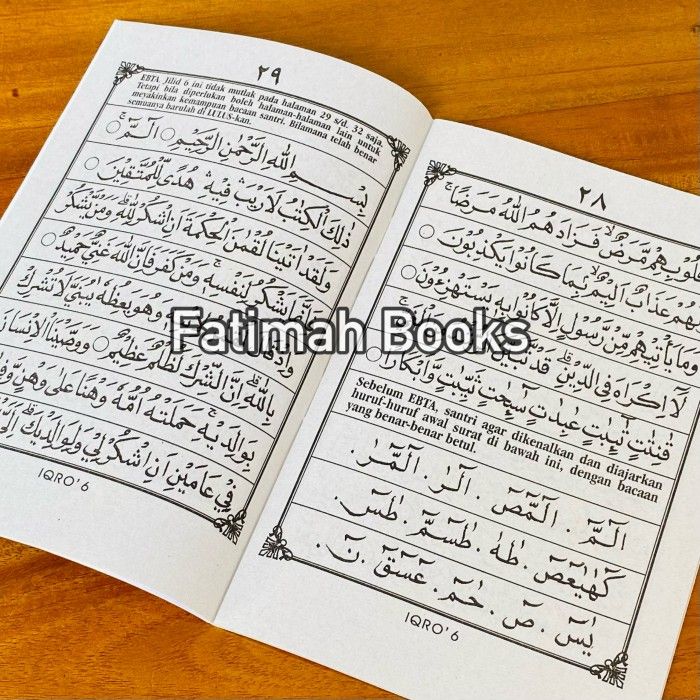 ٢٨
مَّرَضٌۙ فَزَادَهُمُ اللّٰهُ مَرَضًاۚ
عَذَابٌ اَلِيْمٌۙ بِمَا كَانُوْا يَكْذِبُوْنَ ○
وَمَا يَأْتِيْهِمْ مِّنْ رَّسُوْلٍ اِلَّا كَانُوْا بِهٖ يَسْتَهْزِءُوْنَ ○
لَآ اِكْرَاهَ فِى الدِّيْنِۗ قَدْ
قٰنِتٰتٍ تٰٓئِبٰتٍ عٰبِدٰتٍ سٰٓئِحٰتٍ ثَيِّبٰتٍ وَّاَبْكَارًا ○
Sebelum EBTA, santri agar dikenalkan dan diajarkan
huruf-huruf awal surat di bawah ini, dengan bacaan
yang benar-benar betul.
الٓمّٓ . الٓمّٓصٓ . الٓرٰ . الٓمّٓرٰ .
كٓهٰيٰعٓصٓ . طٰهٰ . طٰسٓمّٓ . طٰسٓ .
يٰسٓ . صٓ . حٰمٓ . عٓسٓقٓ . نٓ .
IQRO' 6
٢٩
EBTA Jilid 6 ini tidak mutlak pada halaman 29 s/d. 32 saja.
Tetapi bila diperlukan boleh halaman-halaman lain untuk
meyakinkan kemampuan bacaan santri. Bilamana telah benar
semuanya barulah di LULUS-kan.
بِسْمِ اللّٰهِ الرَّحْمٰنِ الرَّحِيْمِ ○ الٓمّٓۚ ○
ذٰلِكَ الْكِتٰبُ لَا رَيْبَۛ فِيْهِۛ هُدًى لِّلْمُتَّقِيْنَ ○
وَلَقَدْ اٰتَيْنَا لُقْمٰنَ الْحِكْمَةَ اَنِ اشْكُرْ لِلّٰهِۗ وَمَنْ يَّشْكُرْ
فَاِنَّمَا يَشْكُرُ لِنَفْسِهٖۚ وَمَنْ كَفَرَ فَاِنَّ اللّٰهَ غَنِيٌّ حَمِيْدٌ ○
وَهُوَ يَعِظُهٗ يٰبُنَيَّ لَا تُشْرِكْ
بِاللّٰهِۗ اِنَّ الشِّرْكَ لَظُلْمٌ عَظِيْمٌ ○ وَوَصَّيْنَا الْاِنْسَانَ
بِوَالِدَيْهِۚ حَمَلَتْهُ اُمُّهٗ وَهْنًا عَلٰى وَهْنٍ
فِيْ عَامَيْنِ اَنِ اشْكُرْ لِيْ وَلِوَالِدَيْكَۗ
IQRO' 6
Fatimah Books